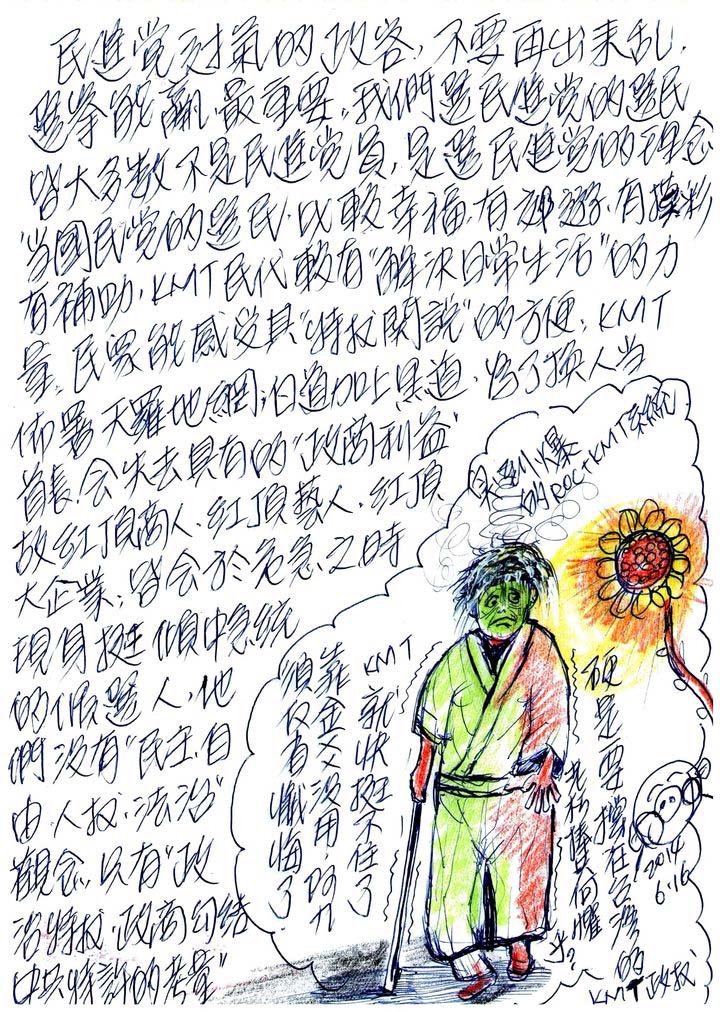 民進党討摼的政客,不要再出来乱,
選挙能贏最重要,我們選民進党的選民
皆大多数不是民進党員,是選民進党的理念
当國民党的選民,比較幸福,有郊遊,有摸彩
有補助,KMT民代較有"解決日常生活"的力
量,民眾能感受其"特权関說"的方便,KMT
佈署天羅地網,白道加上黑道,為了換人当
首長,会失去具有的"政商利益"
故紅頂商人,紅頂藝人,紅頂
大企業,皆会於危急之時
現身挺傾中急統
的候選人,他
們没有"民主,自
由,人权,法治"
觀念,只有"政
治特权,政商勾結
中共特許的考量"
的ROC+KMT系統
KMT
就快挺不住了
靠金父父没用,阿九
須仅有懺悔了
硬是要擋在台湾的
KMT政权
2014
6.16